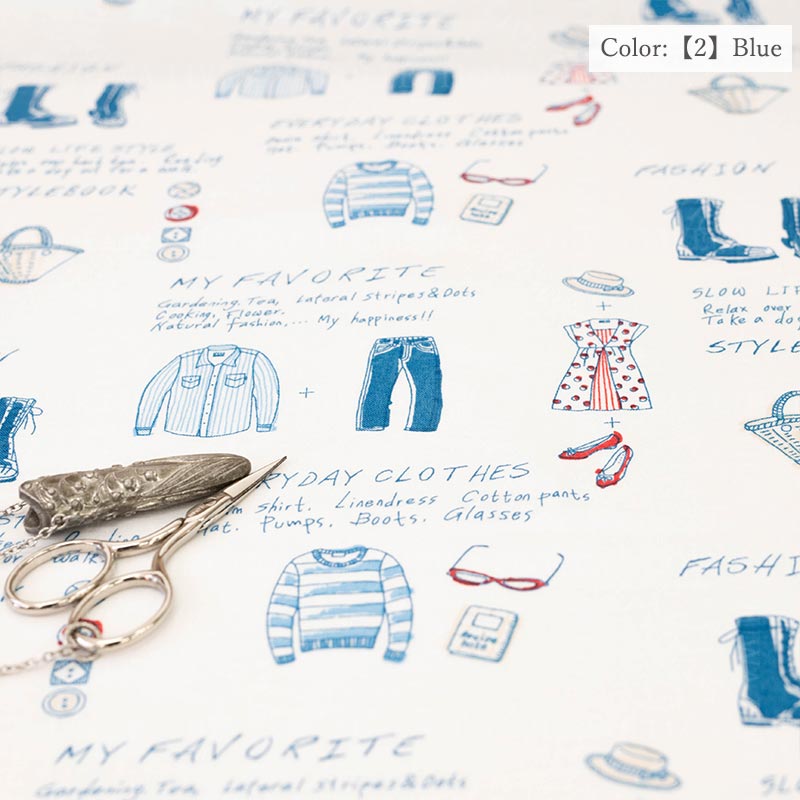 Color:【2】Blue
MY FAVORITE
EVERYDAY CLOTHES
Hat. Pumps. Boots. Glasses
FASHION
SLOW LIFE STYLE
STYLEBOOK
recipe note
MY FAVORITE
Gardening. Tea, Latoral stripes & Dots
Cooking, Flower.
Natural fashion,... My happiness!!
FASHION
SLOW LIF
Relax over
Take a do
STYLE
RYDAY CLOTHES
m shirt. Linendress Cotton pants
Hat. Pumps. Boots. Glasses
walk
recipe note
FASHI
MY FAVORITE
Gardening. Tea, Latoral stripes & Dots
SLO